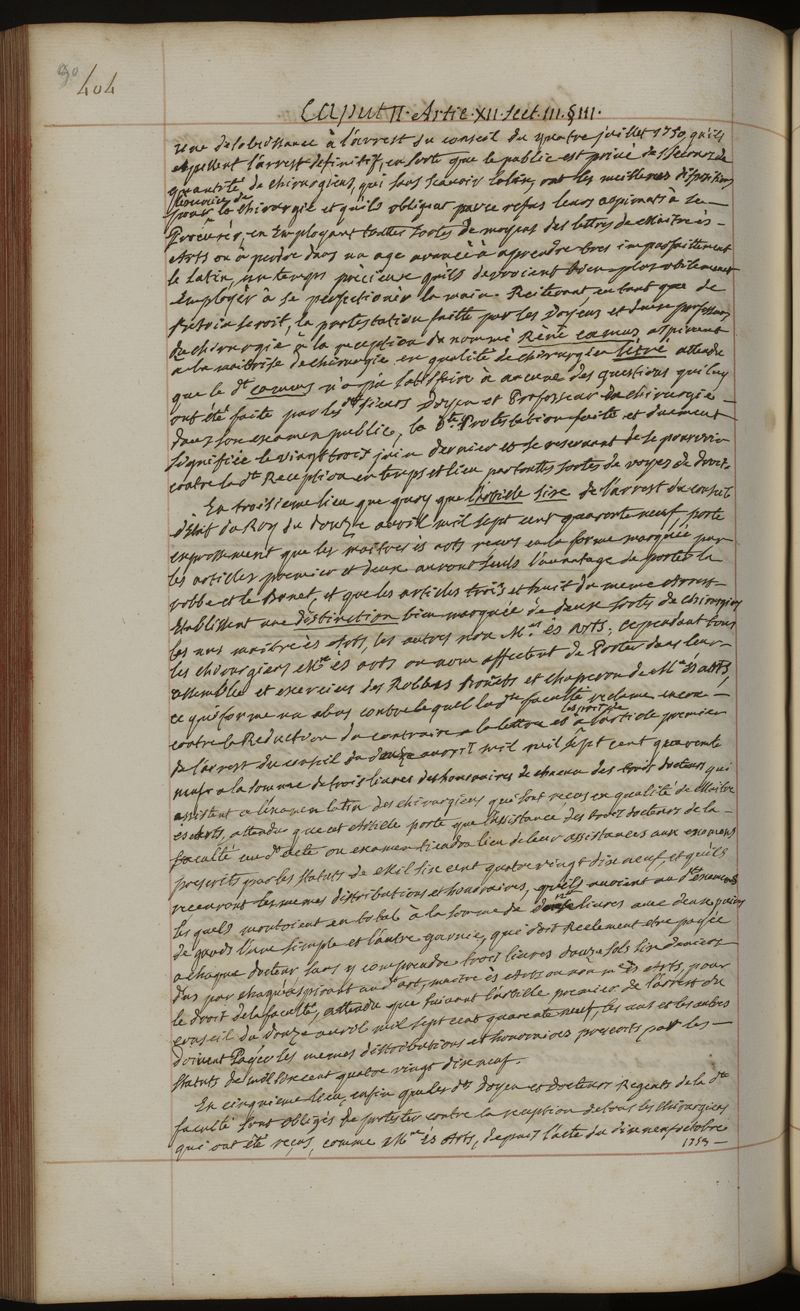 404
Caput II. Artic. XII. sect. III. §III.
à l'arrest du conseil du quatre juillet 1750, qu'ils
l'arrest definitif, en sorte que le public est privé de
quantité de chirurgiens, qui sans scavoir latin, ont les meilleures dispositions
pour la chirurgie et qu'ils obligent par ce refus leurs aspirants à se
Procurer, en Employant touttes sortes de moyens des lettres de Maitre ès
Arts ou à perdre dans un age avancé à apprendre tres imparfaitement
le latin, un temps précieux qu'ils devroient bien plus utilement
Employer à se perfectioner la main. Reiterant en tant que de
besoin seroit, la protestation faitte par les Doyens et deux professeurs
de chirurgie à la reception du nommé Réné camus aspirant
a la maitrise de chirurgie en qualité de chirurgien létré attendu
que le dt camus n'a pû satisfaire à aucune des questions qui luy
ont été faite par les dts sieurs Doyen et Professeur de chirurgie
dans son examen public, la dte Protestation faite et duement
signifiée le vingt trois juin dernier et se reservant de se pourvoir
contre la dte Reception en temps et lieu par touttes sortes de voyes de droit.
En troisieme lieu que quoy que l'article sixe de l'arrest du conseil
d'Etat du Roy du douze avril mil sept cent quarente neuf, porte
expressement que les maitres ès arts recus en la forme marquée par
les articles premier et deux auront seuls l'avantage de porter la
robbe et le Bonet, et que les articles trois et huit du meme Arrest
Etablissent une distinction bien marquée de deux sortes de chirurgiens
les uns maitre ès Arts, les autres non Mes ès Arts; cependant tous
les chirurgiens Mes ès arts ou non affectent de Porter dans leur
assemblée et exercices des Robbes Bonets et chaperon de Me ès arts,
ce qui forme un abus contre lequel la dte faculté reclame encore
contre la Reduction du contraire a la lettre et à l'esprit de l'article premier
de l'arrest du conseil du douze avril mil sept cent quarente
neuf a la somme de trois livres des honoraires de chacun des trois docteurs qui
assistent a l'examen latin des chirurgiens qui sont recus en qualité de Maitre
es Arts, attendu que cet Article porte que l'assistance des trois docteurs de la
faculté au dt acte ou examen tiendra lieu de leur assistances aux examens
prescrits par les statuts de Mil six cent quatre vingt dixe neuf, et qu'ils
recevront les memes distributions et honoraires, qu'ils avoient au dts examens
les quels montoient en total à la somme de douze livres avec deux paires
de gands l'une simple et l'autre garnie, qui doit Reelement etre payée
a chaque docteur sans y comprendre trois livres douze sols six deniers
dus par chaque aspirant au dt art, maitre ès Arts ou non Me ès Arts, pour
le droit de la faculté, attendu que suivant l'article premier de l'arrest du
conseil du douze avril mil sept cent quarente neuf, les uns et les autres
doivent Payer les memes distributions et honoraires prescrits par les
statuts de mil six cent quatre vingt dixe neuf.
En cinquieme lieu, enfin que les dts Doyen et Docteurs Regents de la dte
faculté sont obligés de protester contre la reception de tous les chirurgiens
qui ont été reçus, comme Mes ès Arts, depuis l'acte du dix neuf octobre
1753